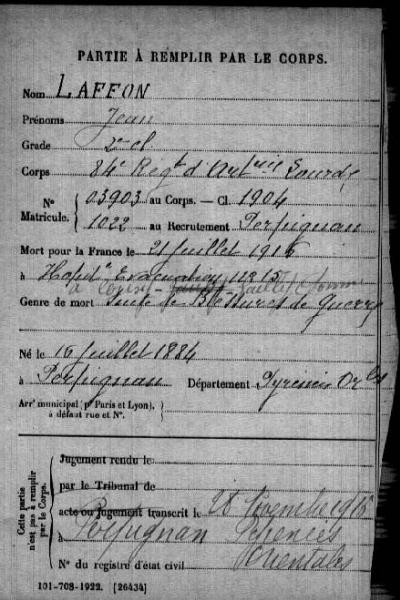 PARTIE À REMPLIR PAR LE CORPS.
Nom LAFFON
Prénoms Jean
Grade 2e cl
Corps 84e Régt d'Artrie Lourde
N° 03903 au Corps. — Cl. 1904
Matricule. 1022 au Recrutement Perpignan
Mort pour la France le 21 Juillet 1916
à Hopital Evacuation no 15
à Somme
Genre de mort Suite de Blessures de Guerre
Né le 16 Juillet 1884
à Perpignan Département Pyrénées Orles
Arrt municipal (pr Paris et Lyon),
à défaut rue et N°.
Cette partie
n'est pas à remplir
par le Corps.
Jugement rendu le
par le Tribunal de
acte ou jugement transcrit le 28 Novembre 1916
à Perpignan Pyrénées
Orientales
N° du registre d'état civil
101-708-1922. [26434]